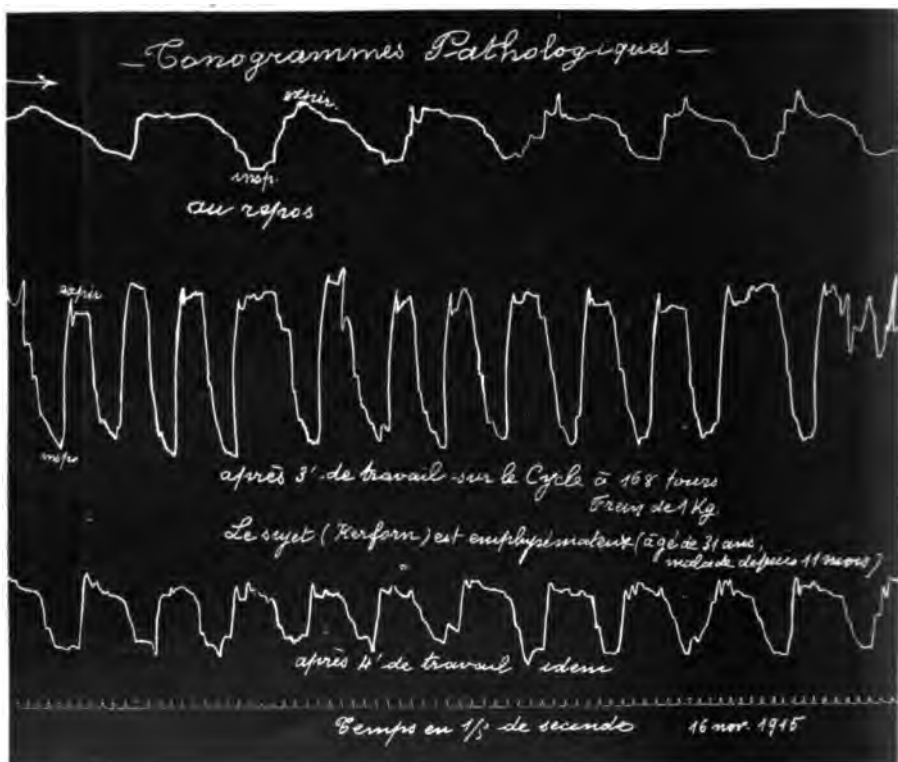 — Tonogrammes Pathologiques —
expir.
insp.
au repos
expir
insp.
après 3' de travail sur le Cycle à 168 tours
Frein de 1 Kg.
Le sujet (Kerforn) est emphysémateux (âgé de 31 ans,
malade depuis 11 mois)
après 4' de travail idem
Temps en 1/5 de seconde 16 nov. 1915